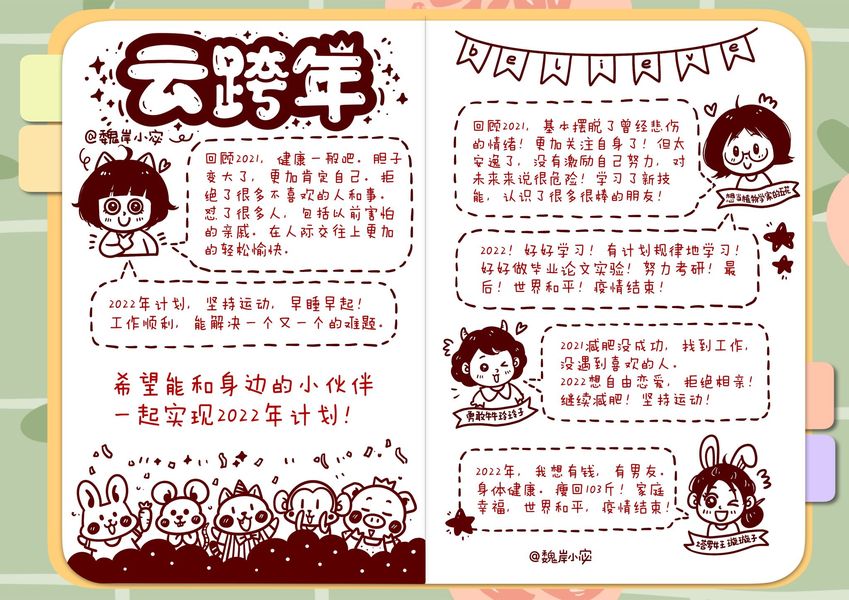 云跨年
@魏岸小宓
回顾2021，健康一般吧。胆子
变大了，更加肯定自己。拒
绝了很多不喜欢的人和事。
怼了很多人，包括以前害怕
的亲戚。在人际交往上更加
的轻松愉快。
2022年计划，坚持运动，早睡早起！
工作顺利，能解决一个又一个的难题。
希望能和身边的小伙伴
一起实现2022年计划！
believe
回顾2021，基本摆脱了曾经悲伤
的情绪！更加关注自身了！但太
安逸了，没有激励自己努力，对
未来来说很危险！学习了新技
能，认识了很多很棒的朋友！
想当植物学家的芪
2022！好好学习！有计划规律地学习！
好好做毕业论文实验！努力考研！最
后！世界和平！疫情结束！
2021减肥没成功，找到工作，
没遇到喜欢的人。
2022想自由恋爱，拒绝相亲！
继续减肥！坚持运动！
勇敢牛牛玲玲子
2022年，我想有钱，有男友。
身体健康。瘦回103斤！家庭
幸福，世界和平，疫情结束！
塔罗牛王璇璇子
@魏岸小宓